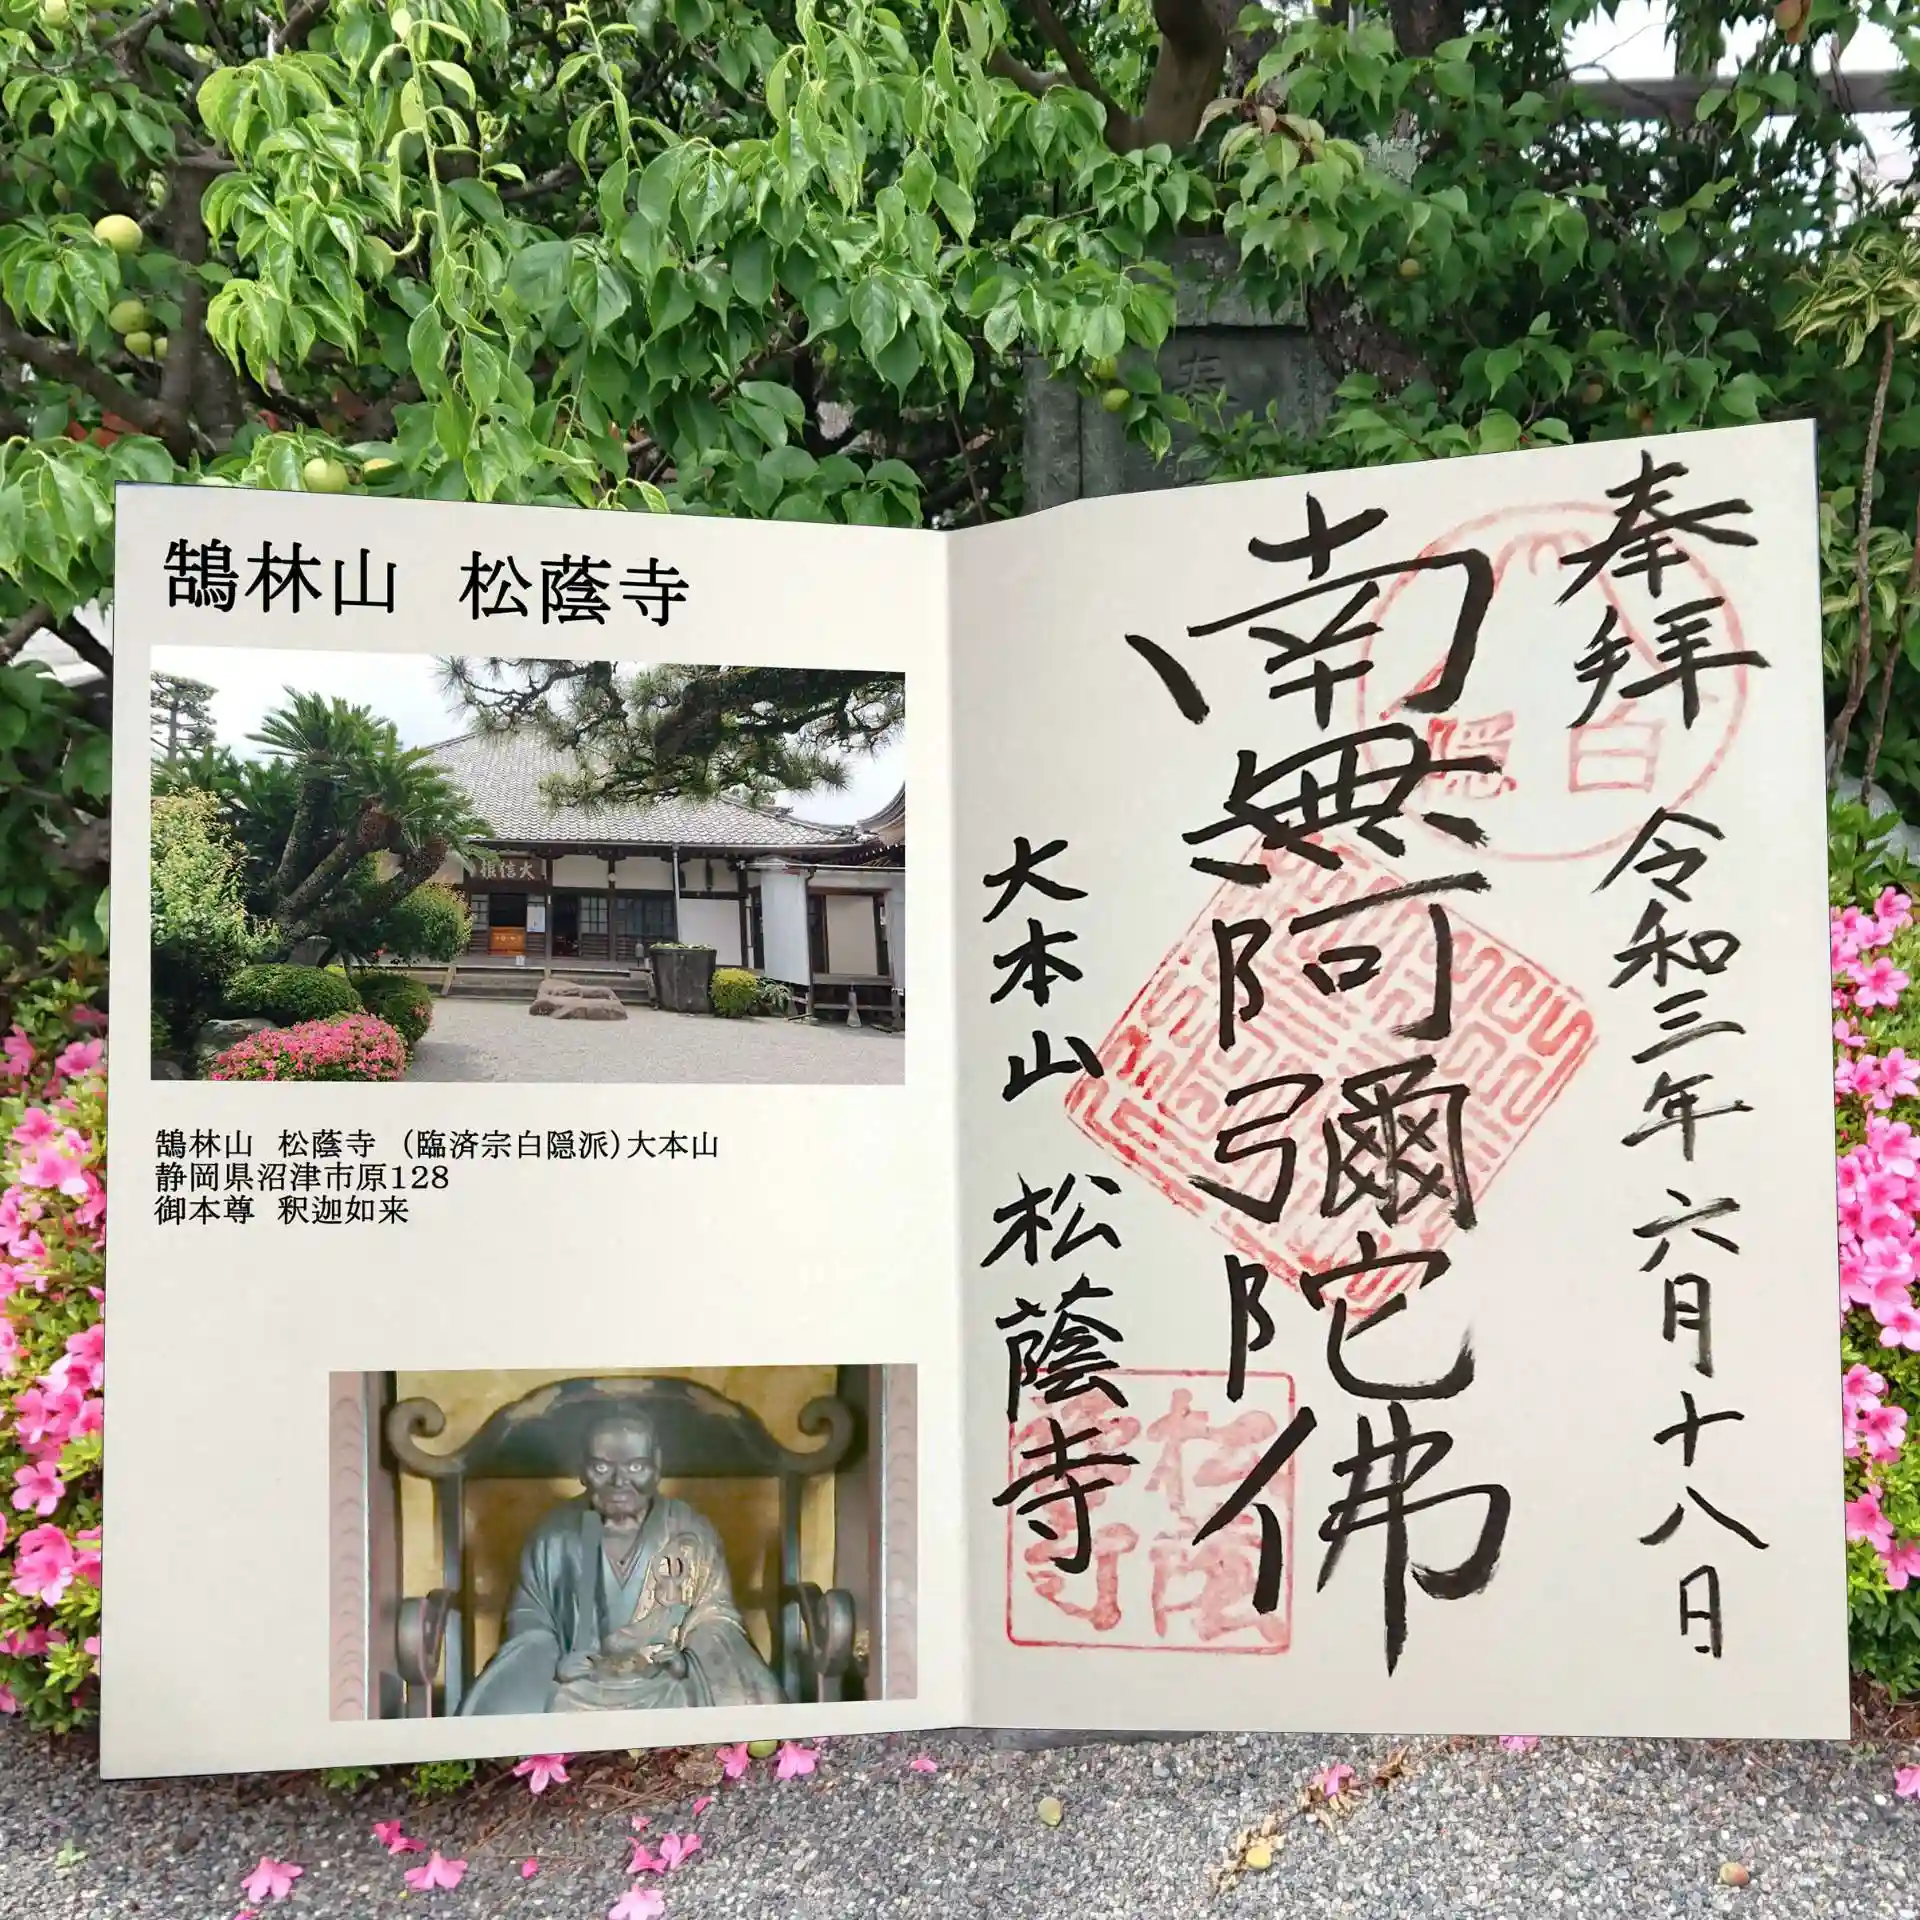 鵠林山 松蔭寺
大信根
鵠林山 松蔭寺 (臨済宗白隠派)大本山
静岡県沼津市原128
御本尊 釈迦如来
奉拝 令和三年 六月十八日
南無阿彌陀佛
大本山 松蔭寺
白隠
松蔭寺
奉